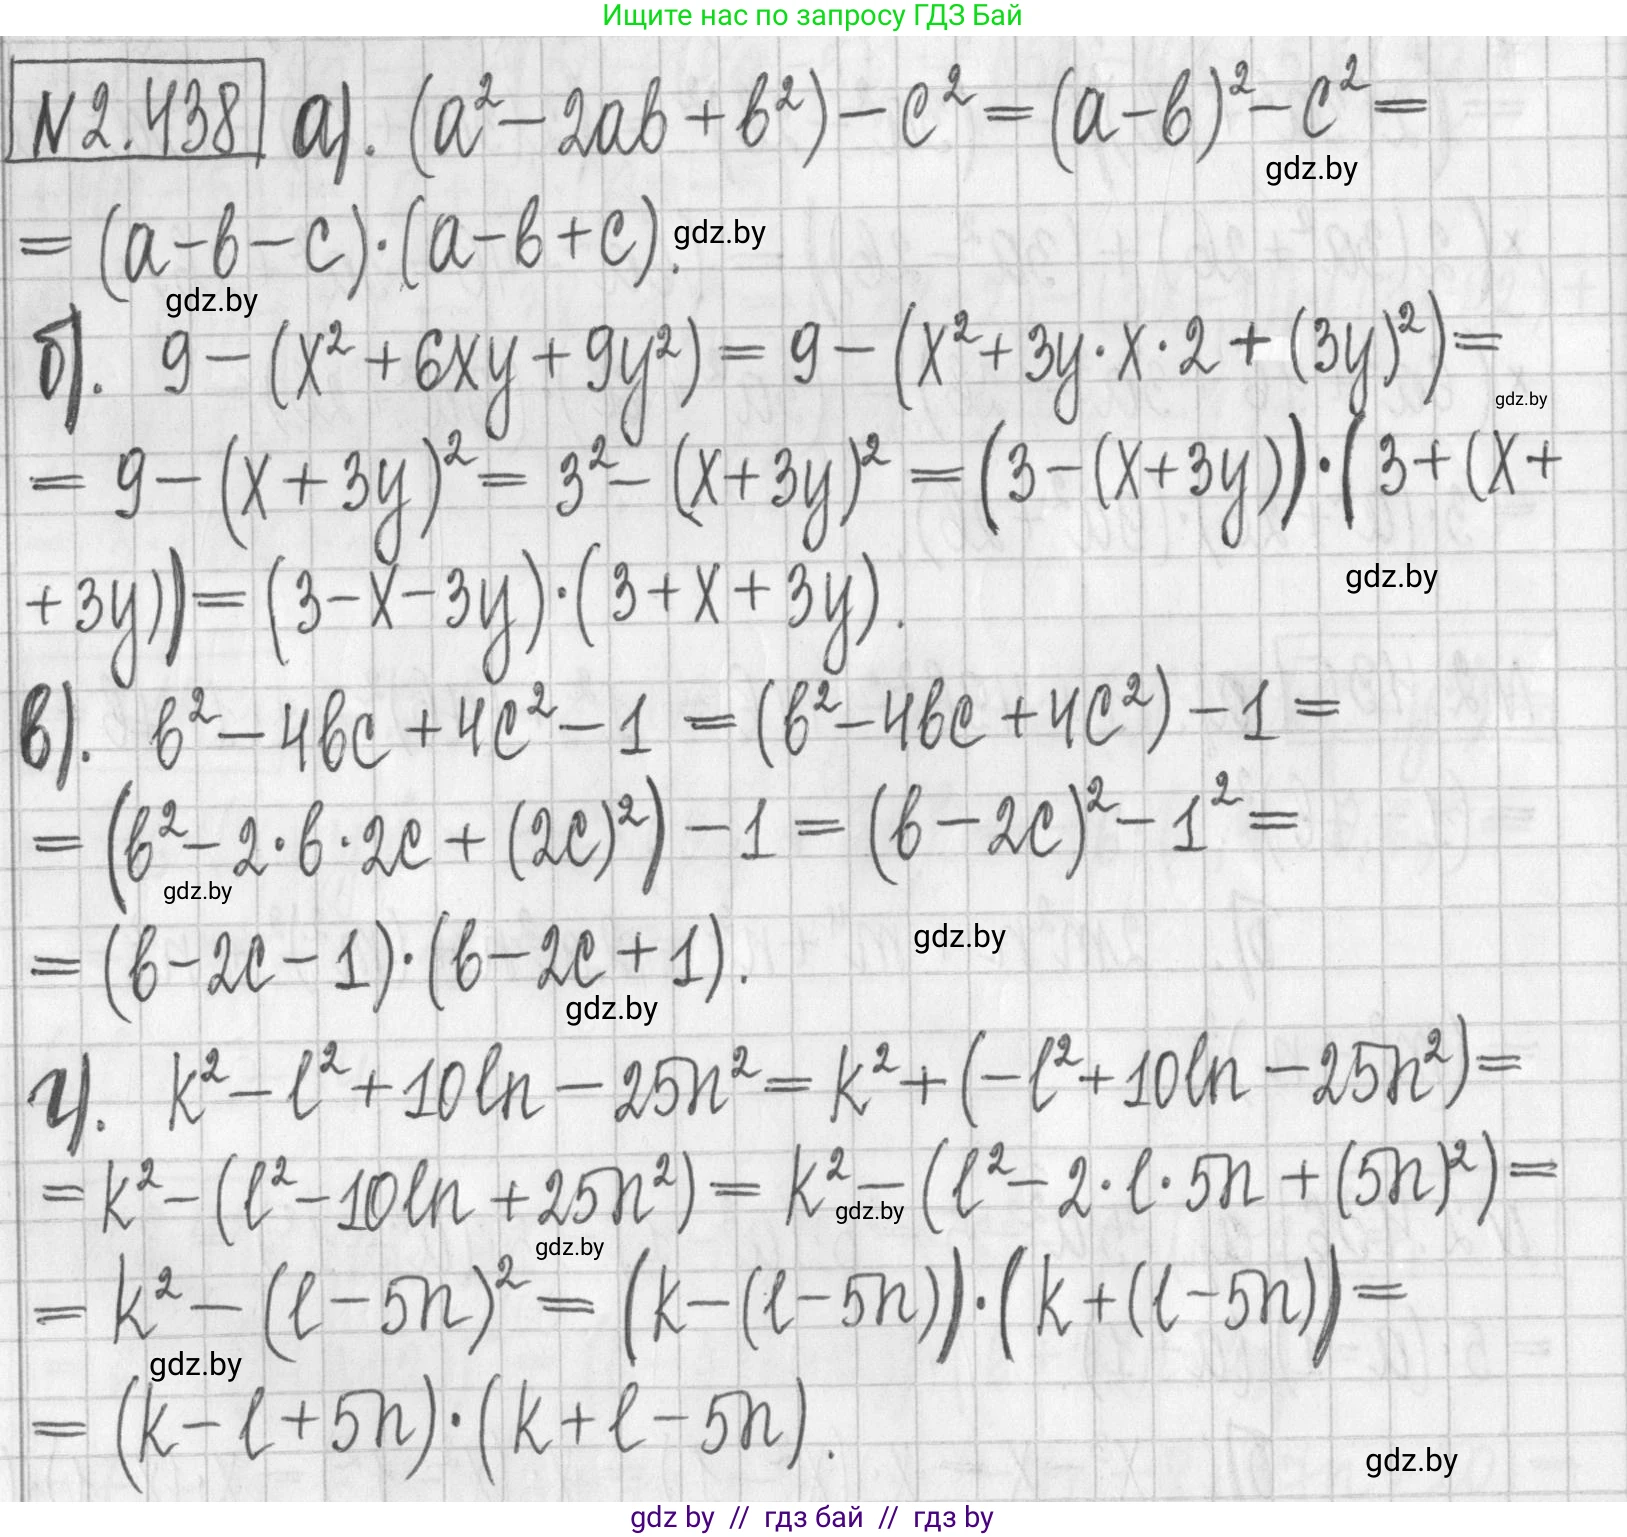 Ищите нас по запросу ГДЗ Бай
N2.438 а). (a² - 2ab + b²) - c² = (a - b)² - c² =
gdz.by
= (a - b - c)·(a - b + c). gdz.by
gdz.by
б). 9 - (x² + 6xy + 9y²) = 9 - (x² + 3y·x·2 + (3y)²) =
gdz.by
= 9 - (x + 3y)² = 3² - (x + 3y)² = (3 - (x + 3y))·(3 + (x +
+ 3y)) = (3 - x - 3y)·(3 + x + 3y).
gdz.by
в). b² - 4bc + 4c² - 1 = (b² - 4bc + 4c²) - 1 =
= (b² - 2·b·2c + (2c)²) - 1 = (b - 2c)² - 1² =
gdz.by
= (b - 2c - 1)·(b - 2c + 1).
gdz.by
gdz.by
г). k² - l² + 10ln - 25n² = k² + (-l² + 10ln - 25n²) =
= k² - (l² - 10ln + 25n²) = k² - (l² - 2·l·5n + (5n)²) =
gdz.by
gdz.by
= k² - (l - 5n)² = (k - (l - 5n))·(k + (l - 5n)) =
gdz.by
= (k - l + 5n)·(k + l - 5n).
gdz.by
gdz by // гдз бай // гдз by